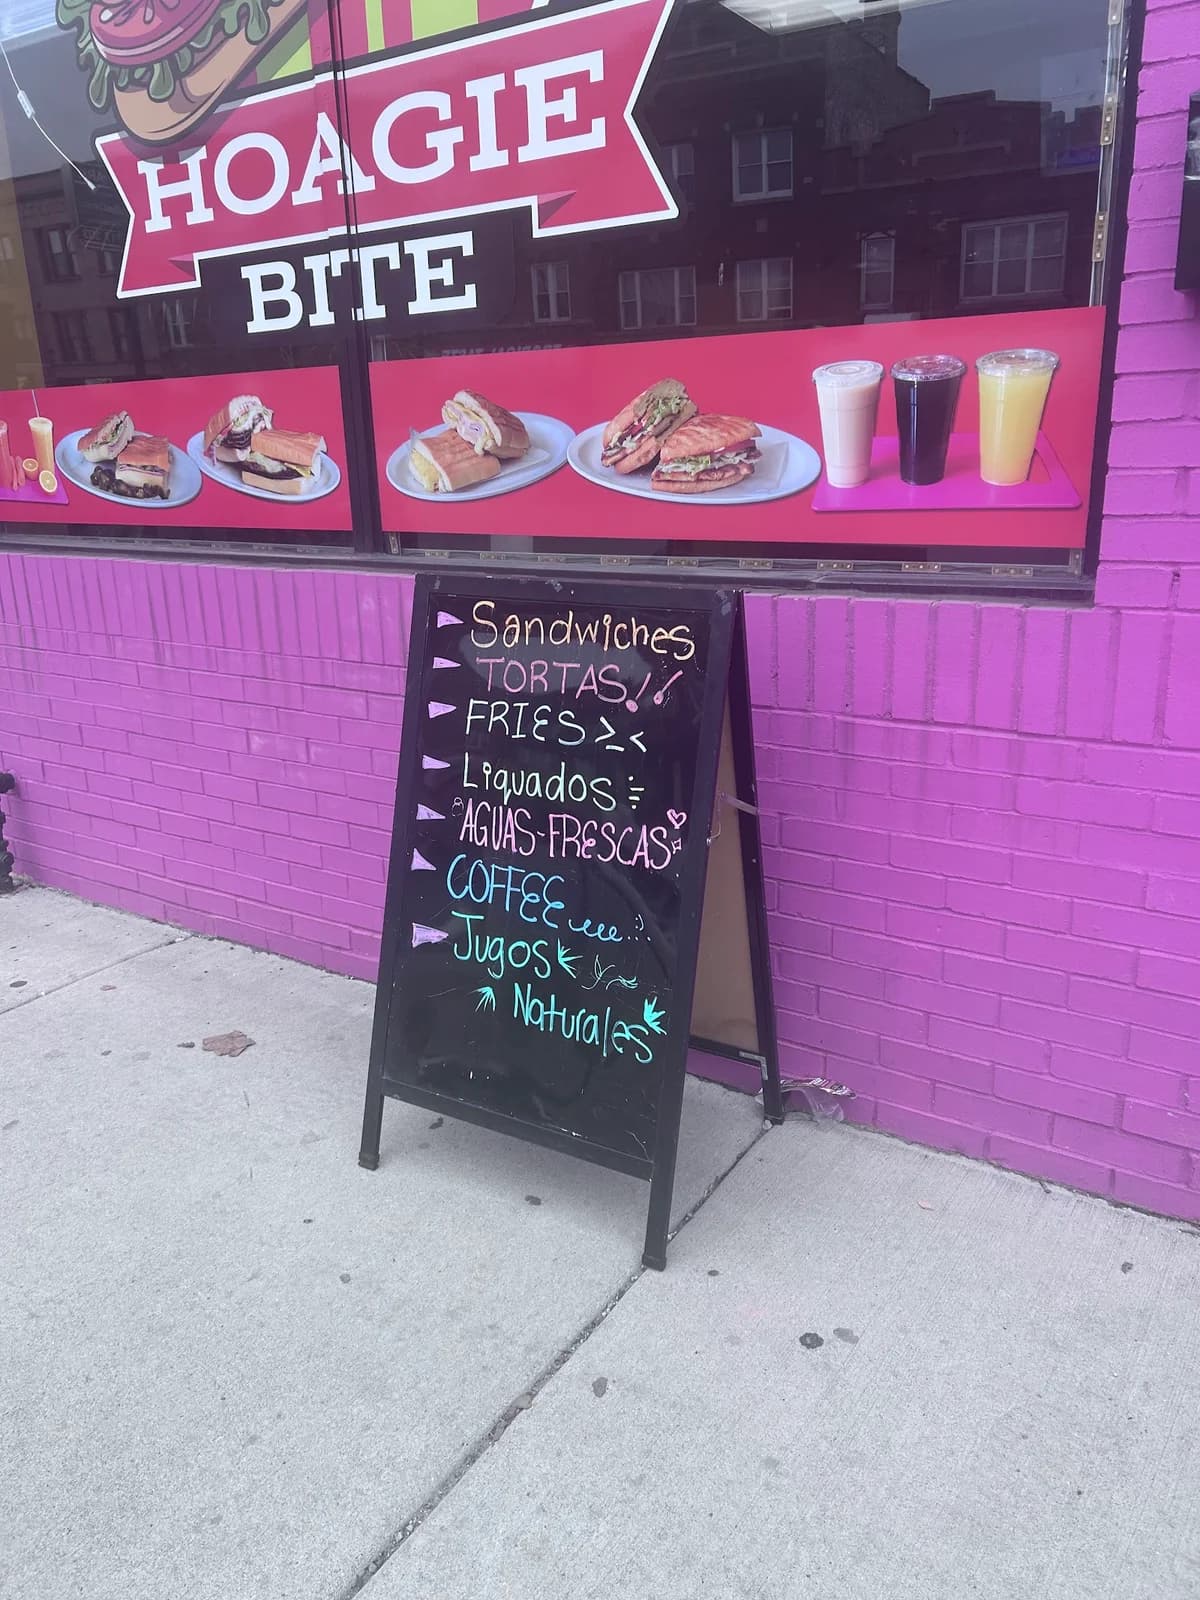 HOAGIE
BITE
Sandwiches
TORTAS!!
FRIES >_<
Liquados
AGUAS-FRESCAS
COFFEE
Jugos
Naturales